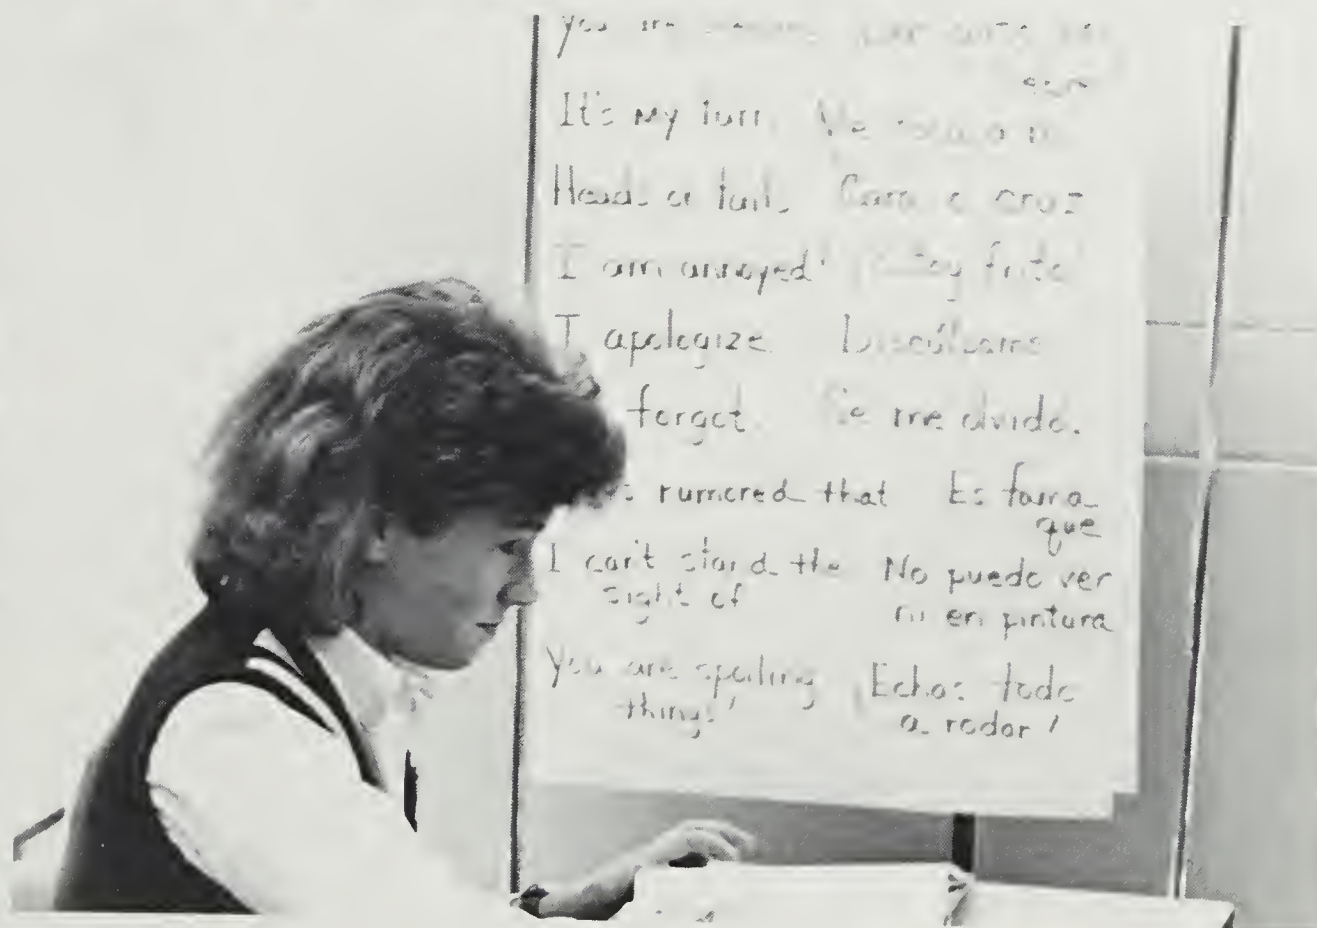 you are
It's my turn. Me toca a mi
Heads or tails Cara o cruz
I am annoyed! ¡Estoy frito!
I apologize Discúlpame
forgot Se me olvido.
rumored that Es fama
que
I can't stand the No puedo ver
sight of ni en pintura
You are spoiling ¡Echas todo
things! a rodar!